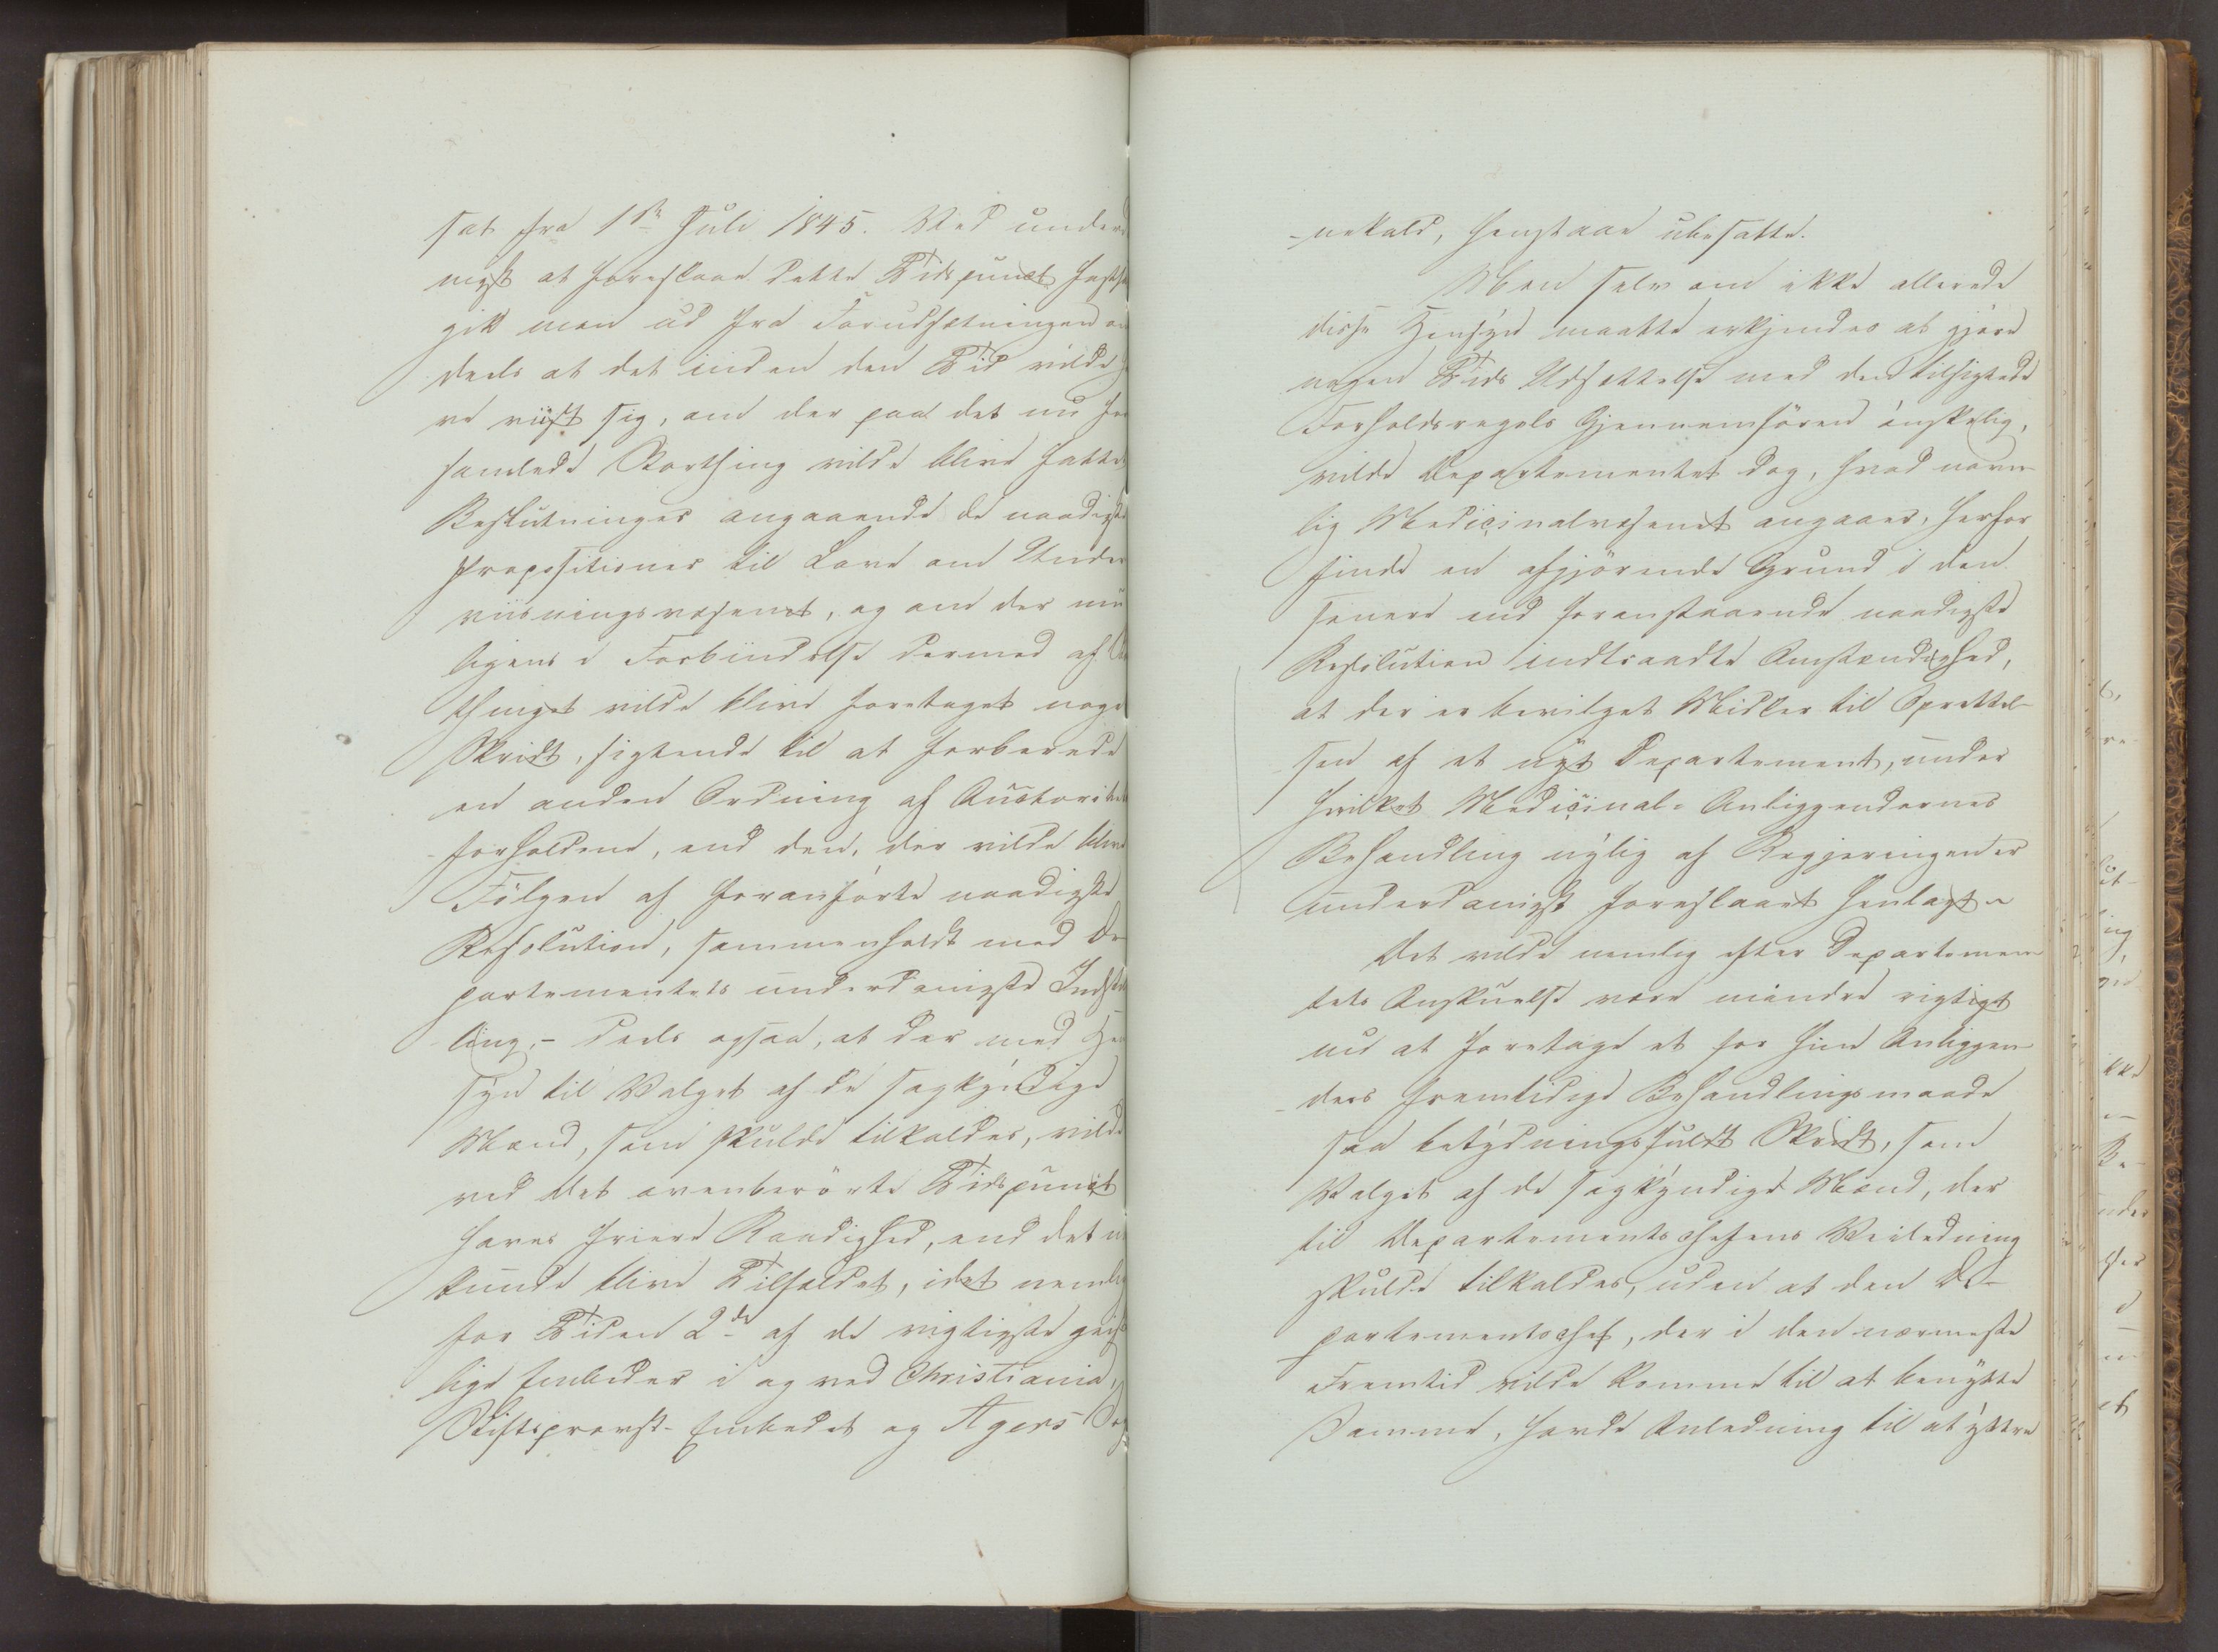 sat fra 1ste Juli 1845. Ved underd
nigst at foreslaae dette Tidspunct fasts
gik man ud fra Forudsætningen om
deels at det inden den Tid vilde ha
ve viist sig, om der paa det nu for
samlede Storthing vilde blive fattet
Beslutninger angaaende de naadigste
Propositioner til Love om Under
viisningsvæsenet, og om der mu
ligens i Forbindelse dermed af Stor
thinget vilde blive foretaget noget
Skridt, sigtende til at forberede
en anden Ordning af Autoritets
forholdene, end den, der vilde blive
Følgen af foranførte naadigste
Resolution, sammenholdt med De
partementets underdanigste Indstil
ling, – deels ogsaa, at der med Hen
syn til Valget af de sagkyndige
Mænd, som skulde tilkaldes, vilde
ved det ovenberørte Tidspunct
haves friere Raadighed, end det nu
kunde blive Tilfældet, idet nemlig
for Tiden 2de af de vigtigste geist
lige Embeder i og ved Christiania,
Stiftsprovst-Embedet og Agers Sog
-nekald, henstaae ubesatte.
Men selv om ikke allerede
disse Hensyn maatte erkjendes at gjøre
nogen Tids Udsættelse med den tilsigtede
Forholdsregels Gjennemføren ønskelig,
vilde Departementet dog, hvad navn-
lig Medicinalvæsenet angaaer, herfor
finde en afgjørende Grund i den
senere end foranstaaende naadigste
Resolution indtraadte Omstændighed,
at der er bevilget Midler til Oprettel-
sen af et nyt Departement, under
hvilket Medicinal-Anliggendernes
Behandling nylig af Regjeringen er
underdanigst foreslaaet henlagt.
Det vilde nemlig efter Departemen-
tets Anskuelse være mindre rigtigt
nu at foretage et for hine Anliggen-
ders fremtidige Behandlingsmaade
saa betydningsfuldt Skridt, som
Valget af de sagkyndige Mænd, der
til Departementschefens Veiledning
skulde tilkaldes, uden at den De-
partementschef, der i den nærmeste
Fremtid vilde komme til at benytte
Samme, havde Anledning til at yttre